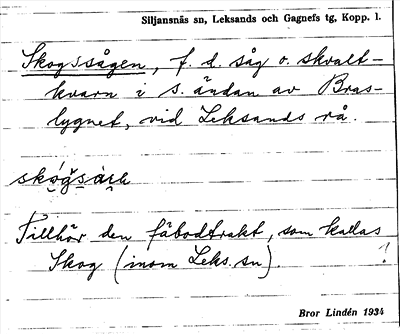 Siljansnäs sn, Leksands och Gagnefs tg, Kopp. l.
Skogssågen, f. d. såg o. skvalt-
kvarn i s. ändan av Bras-
lygnet, vid Leksands rå.
Tillhör den fäbodtrakt, som kallas
Skog (inom Leks. sn). !
Bror Lindén 1934